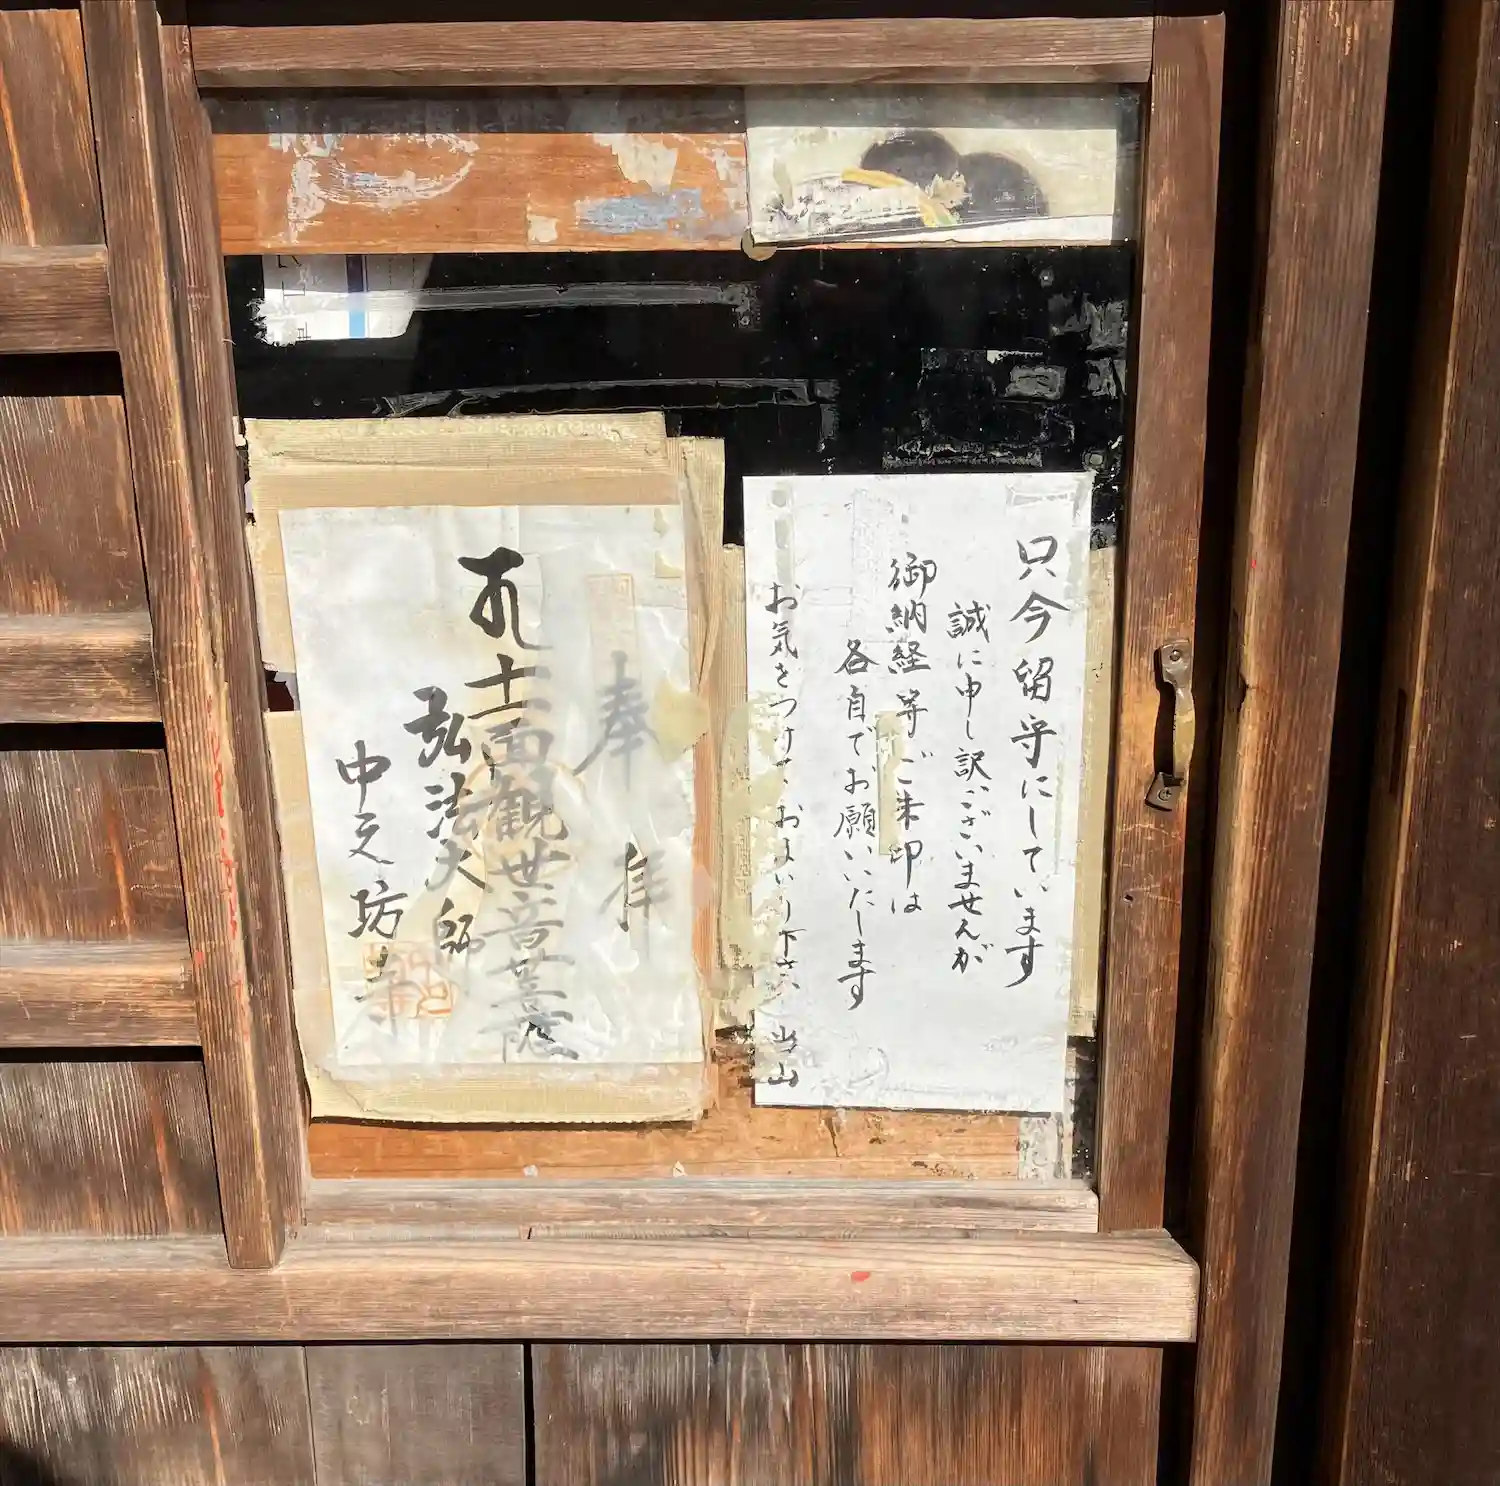 只今留守にしています
誠に申し訳ございませんが
御納経等ご朱印は
各自でお願いいたします
お気をつけて、おまいり下さい 当山
奉拝
十一面観世音菩薩
弘法大師
中之坊寺